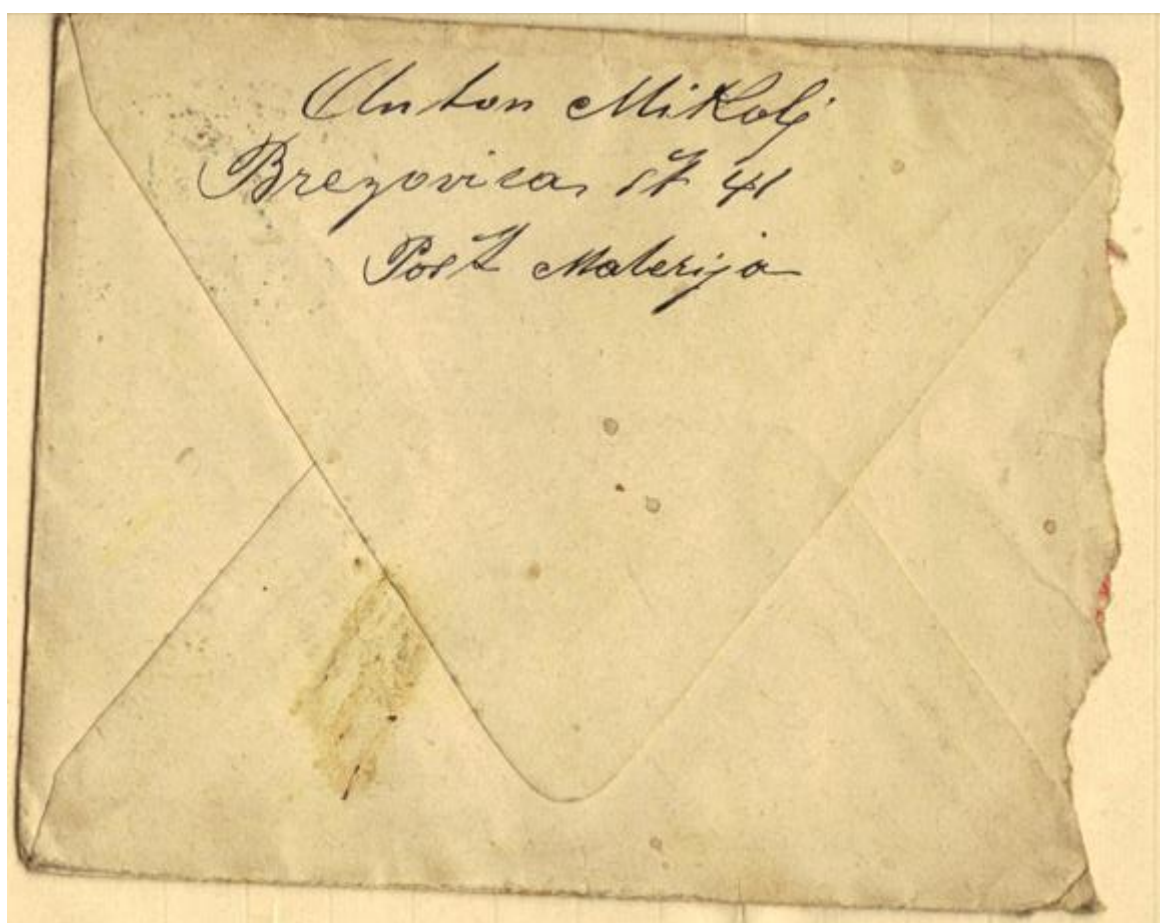 Anton Mikolj
Brezovica št 41
Post Materija